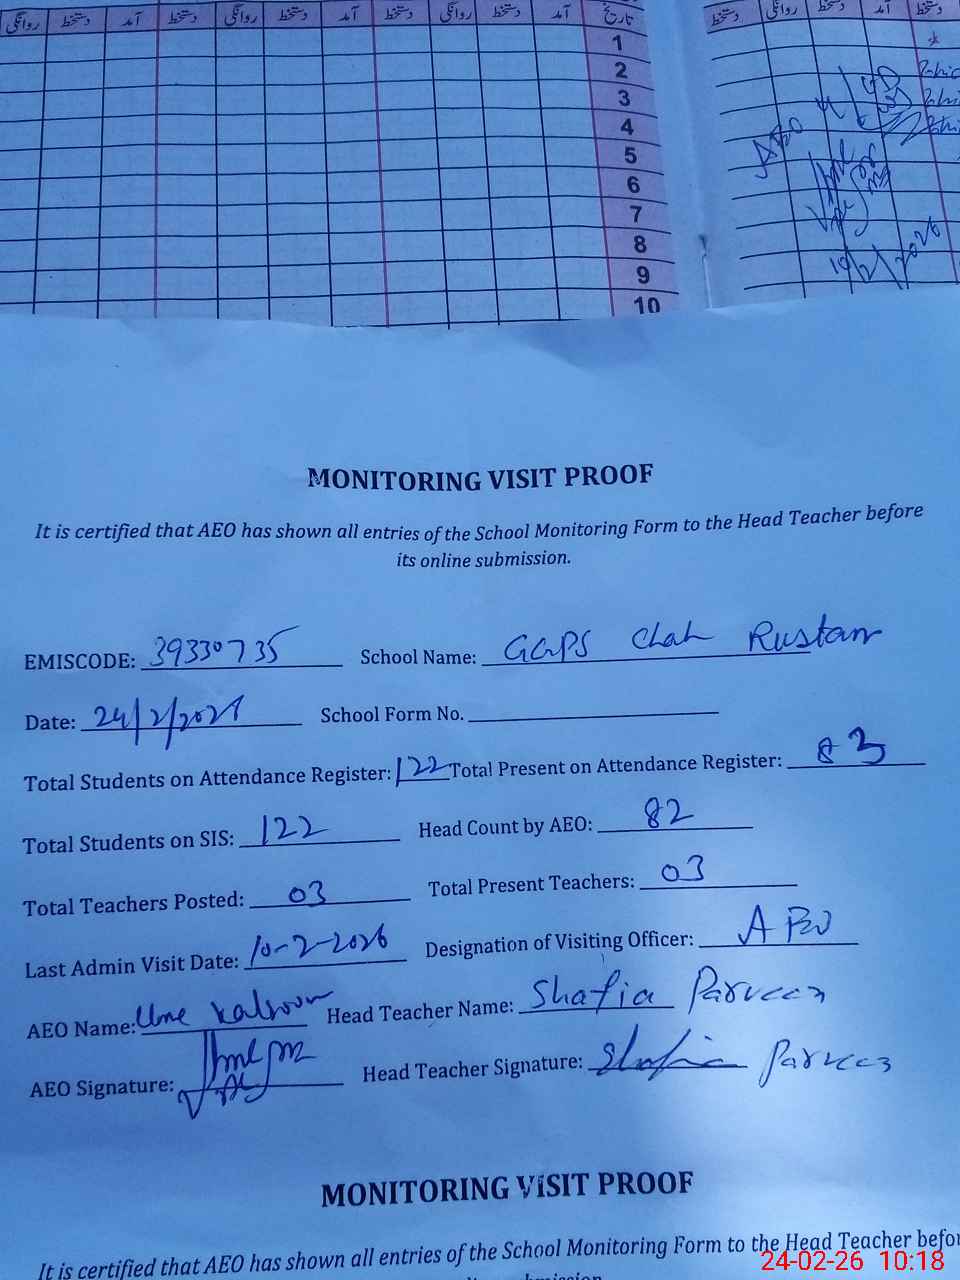 روانگی دستخط آمد دستخط روانگی دستخط آمد دستخط روانگی دستخط آمد تاریخ
دستخط روانگی دستخط آمد دستخط
1
2
3
4
5
6
7
8
9
10
AEO
10/2/2026
MONITORING VISIT PROOF
It is certified that AEO has shown all entries of the School Monitoring Form to the Head Teacher before
its online submission.
EMISCODE: 39330735 School Name: GGPS Chah Rustam
Date: 24/2/2021 School Form No.
Total Students on Attendance Register: 122 Total Present on Attendance Register: 83
Total Students on SIS: 122 Head Count by AEO: 82
Total Teachers Posted: 03 Total Present Teachers: 03
Last Admin Visit Date: 10-2-2026 Designation of Visiting Officer: AEO
AEO Name: Ume Kalsoom Head Teacher Name: Shafia Parveen
AEO Signature: Head Teacher Signature: Shafia Parveen
MONITORING VISIT PROOF
It is certified that AEO has shown all entries of the School Monitoring Form to the Head Teacher
24-02-26 10:18